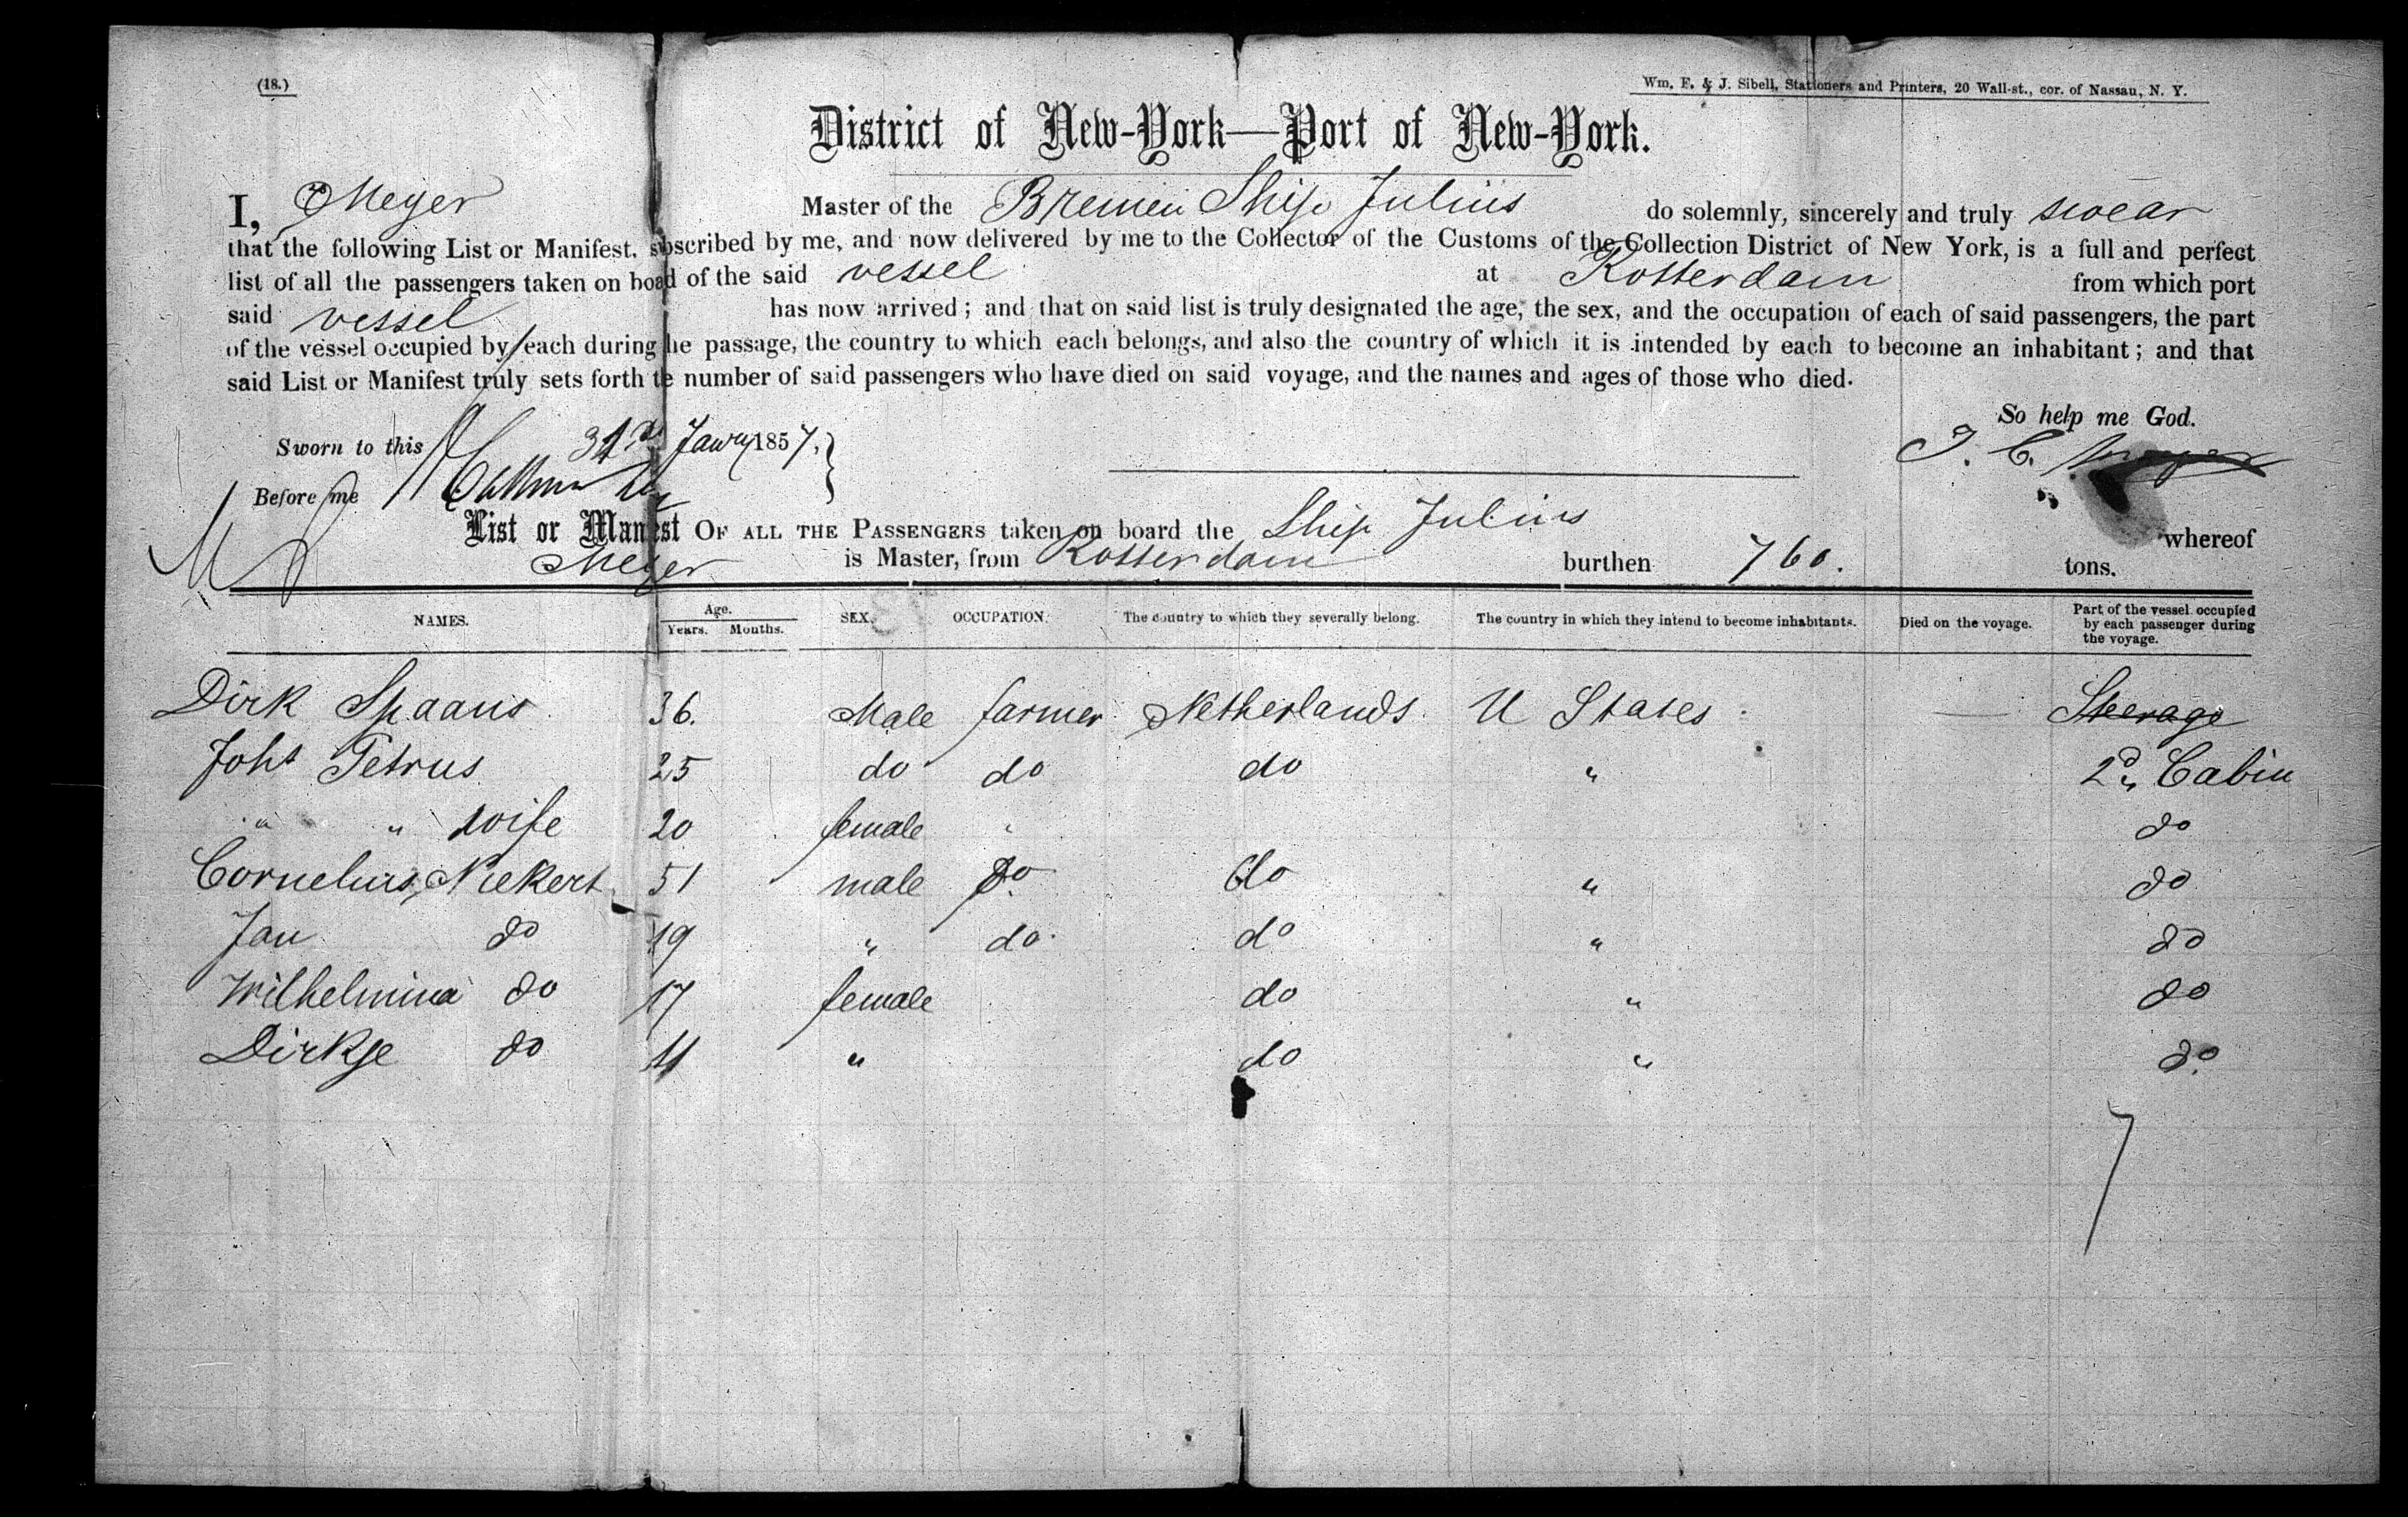 (18.)
Wm. E. & J. Sibell, Stationers and Printers, 20 Wall-st., cor. of Nassau, N. Y.
District of New-York—Port of New-York.
I, Meyer Master of the Bremen Ship Julius do solemnly, sincerely and truly swear
that the following List or Manifest, subscribed by me, and now delivered by me to the Collector of the Customs of the Collection District of New York, is a full and perfect
list of all the passengers taken on board of the said vessel at Rotterdam from which port
said vessel has now arrived; and that on said list is truly designated the age, the sex, and the occupation of each of said passengers, the part
of the vessel occupied by each during the passage, the country to which each belongs, and also the country of which it is intended by each to become an inhabitant; and that
said List or Manifest truly sets forth the number of said passengers who have died on said voyage, and the names and ages of those who died.
So help me God.
Sworn to this 31st Jany 1857.
J. C. Meyer
Before me
List or Manifest OF ALL THE PASSENGERS taken on board the Ship Julius whereof
Meyer is Master, from Rotterdam burthen 760. tons.
NAMES. Age. Years. Months. SEX. OCCUPATION. The country to which they severally belong. The country in which they intend to become inhabitants. Died on the voyage. Part of the vessel occupied by each passenger during the voyage.
Dirk Spaans 36. Male farmer Netherlands U States — Steerage
Joht Petrus 25 do do do " 2d Cabin
" " wife 20 female " do
Cornelius Niekert 51 male do do " do
Jan do 19 " do do " do
Wilhelmina do 17 female do " do
Dirkje do 11 " do " do
7